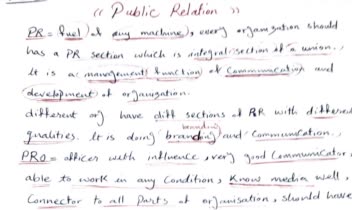 (( Public Relation ))
PR = fuel) of any machine), every organization should
has a PR section which is integral section of a union..
It is a (management) function) of Communication and
development) of organization.
different org have diff sections of PR with different
qualities. It is doing branding) and Communication..
branding
PRO = officer with influence, very good Communicator,
able to work in any Condition, Know media well,
Connector to all Parts of organisation, should have